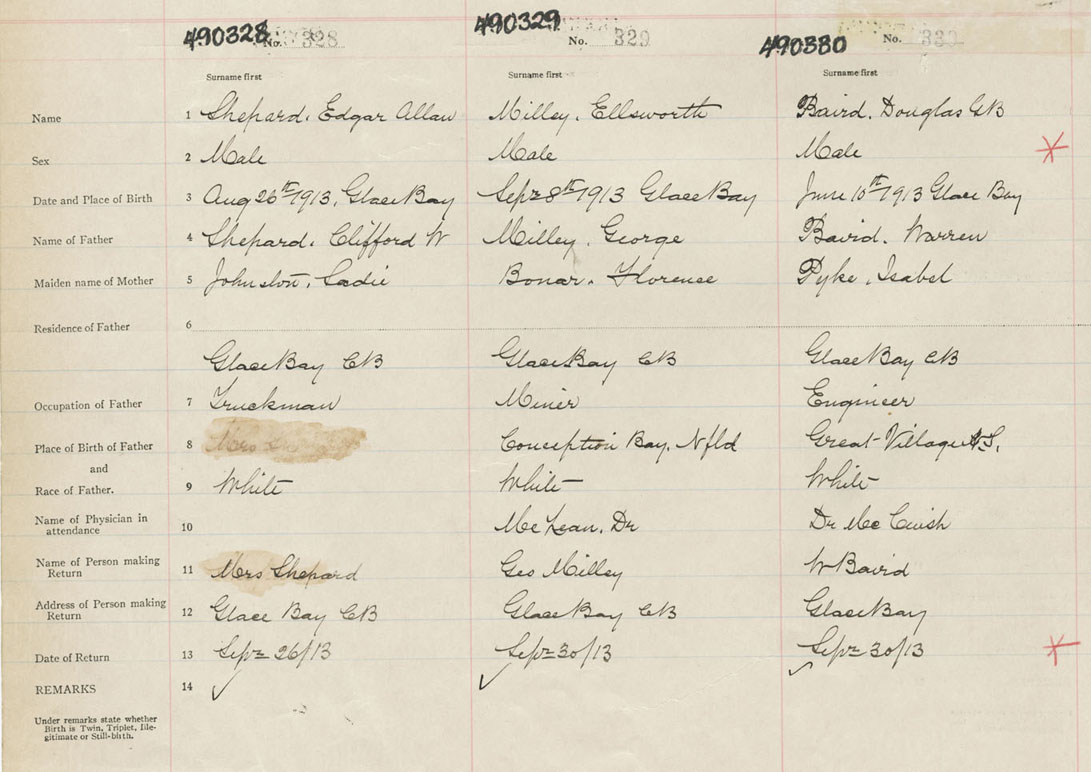 490328 No. 328 490329 No. 329 490330 No. 330
Surname first Surname first Surname first
Name 1 Shepard, Edgar Allan Milley, Ellsworth Baird, Douglas GB
Sex 2 Male Male Male
Date and Place of Birth 3 Aug 26th 1913, Glace Bay Sept 8th 1913 Glace Bay June 10th 1913 Glace Bay
Name of Father 4 Shepard, Clifford W Milley, George Baird, Warren
Maiden name of Mother 5 Johnston, Sadie Bonar, Florence Pyke, Isabel
Residence of Father 6
Glace Bay CB Glace Bay CB Glace Bay CB
Occupation of Father 7 Truckman Miner Engineer
Place of Birth of Father 8 Mrs Conception Bay, Nfld Great Village N.S.
and
Race of Father. 9 White White White
Name of Physician in
attendance 10 McLean, Dr Dr Mc Cuish
Name of Person making
Return 11 Mrs Shepard Geo Milley W Baird
Address of Person making
Return 12 Glace Bay CB Glace Bay CB Glace Bay
Date of Return 13 Sept 26/13 Sept 30/13 Sept 30/13
REMARKS 14
Under remarks state whether
Birth is Twin, Triplet, Ille-
gitimate or Still-birth.